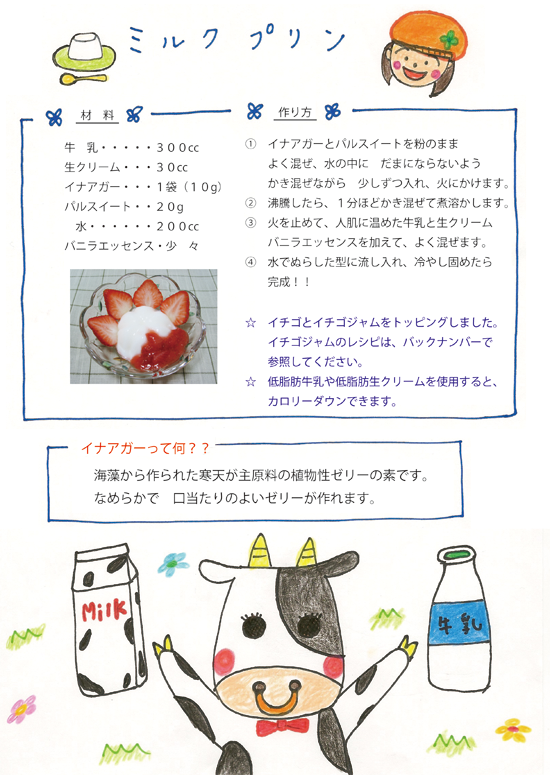 ミルクプリン
材料
牛　乳・・・・・３００cc
生クリーム・・・３０cc
イナアガー・・・１袋（１０g）
パルスイート・・２０g
水・・・・・・２００cc
バニラエッセンス・少　々
作り方
①　イナアガーとパルスイートを粉のまま
よく混ぜ、水の中に　だまにならないよう
かき混ぜながら　少しずつ入れ、火にかけます。
②　沸騰したら、１分ほどかき混ぜて煮溶かします。
③　火を止めて、人肌に温めた牛乳と生クリーム
バニラエッセンスを加えて、よく混ぜます。
④　水でぬらした型に流し入れ、冷やし固めたら
完成！！
☆　イチゴとイチゴジャムをトッピングしました。
イチゴジャムのレシピは、バックナンバーで
参照してください。
☆　低脂肪牛乳や低脂肪生クリームを使用すると、
カロリーダウンできます。
イナアガーって何？？
海藻から作られた寒天が主原料の植物性ゼリーの素です。
なめらかで　口当たりのよいゼリーが作れます。
Milk
牛乳